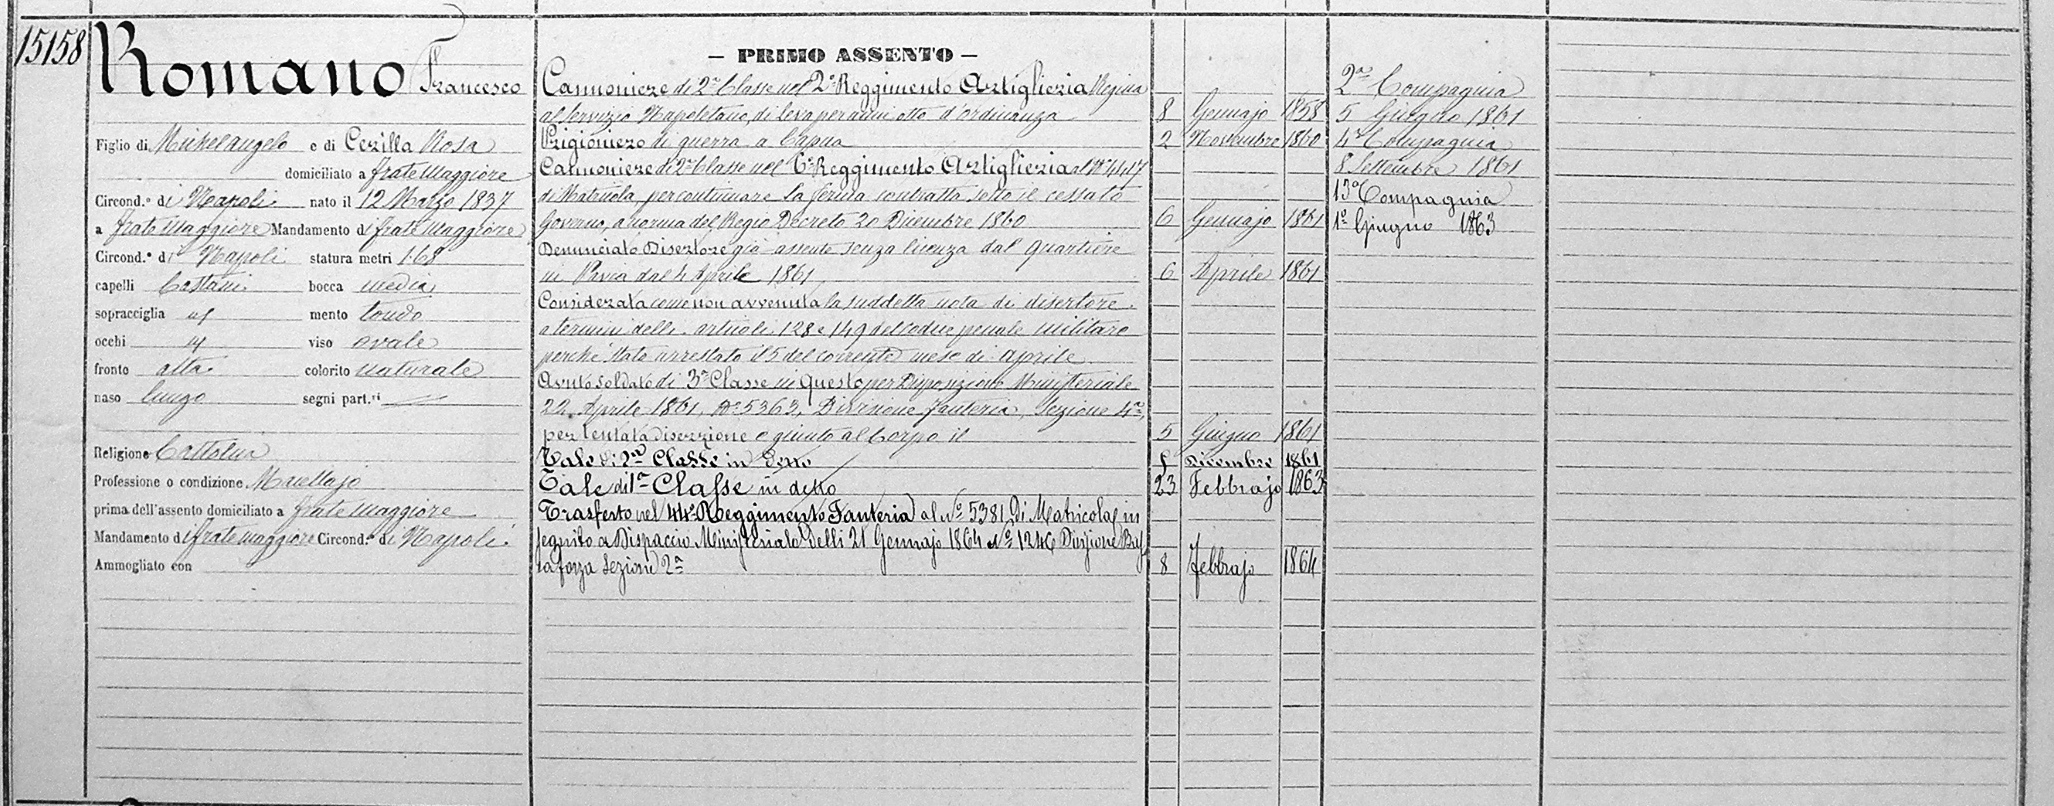 15158
Romano Francesco
Figlio di Michelangelo e di Cerilla Rosa
domiciliato a fratte Maggiore
Circond.º di Napoli nato il 12 Marzo 1837
a fratte Maggiore Mandamento di fratte Maggiore
Circond.º di Napoli statura metri 1:68
capelli Castani bocca media
sopracciglia id mento tondo
occhi id viso ovale
fronte alta colorito naturale
naso lungo segni part.ri
Religione Cattolica
Professione o condizione Macellajo
prima dell'assento domiciliato a fratte Maggiore
Mandamento di fratte Maggiore Circond.º di Napoli
Ammogliato con
— PRIMO ASSENTO —
Cannoniere di 2ª Classe nel 2º Reggimento Artiglieria Regina
al servizio Napoletano, di leva per anni otto d'ordinanza 8 Gennajo 1858
Prigioniero di guerra a Capua 2 Novembre 1860
Cannoniere di 2ª Classe nel 6º Reggimento Artiglieria al Nº 4417
di Matricola, per continuare la ferma contratta sotto il cessato
Governo, a norma del Regio Decreto 20 Dicembre 1860 6 Gennajo 1861
Denunciato Disertore già assente senza licenza dal quartiere
in Pavia dal 4 Aprile 1861 6 Aprile 1861
Considerata come non avvenuta la suddetta nota di disertore
a termini delli articoli 128 e 149 del codice penale militare
perché stato arrestato il 5 del corrente mese di Aprile
Avuto soldato di 3ª Classe in questo per Disposizione Ministeriale
22 Aprile 1861, Nº 5363, Divisione fanteria, Sezione 4ª,
per tentata diserzione e giunto al Corpo il 5 Giugno 1861
Tale di 2ª Classe in detto 1 Dicembre 1861
Tale di 1ª Classe in detto 23 Febbrajo 1863
Trasferto nel 44º Reggimento Fanteria al Nº 5381 Di Matricola in
seguito a Dispaccio Ministeriale delli 21 Gennajo 1864 Nº 1246 Divisione Bas
sa forza Sezione 2ª 8 febbrajo 1864
2ª Compagnia
5 Giugno 1861
4ª Compagnia
8 Settembre 1861
13ª Compagnia
1º Giugno 1863